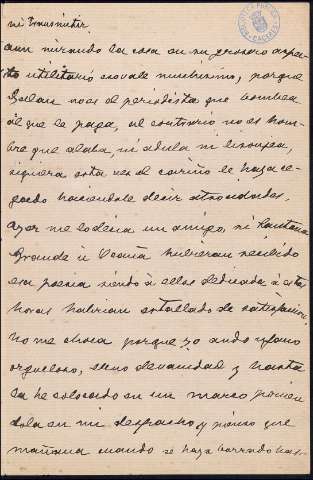 ni transmitir.
aun mirando la cosa en su grosero aspec-
to utilitario eso vale muchisimo, porque
Galan no es el periodista que bombea
al que le paga, al contrario no es hom-
bre que alaba, ni adula ni lisongea,
siquiera esta vez el cariño le haga ce-
gado haciendole decir atrocidades.
Ayer me lo decia un amigo, si Santana
Grande ú Ocaña hubieran recibido
esa poesia siendo á ellos dedicada á estas
horas habrian estallado de satisfaccion,
no me choca porque yo ando ufano
orgulloso, lleno de vanidad y hasta
la he colocado en un marco ponien
dola en mi despacho y pienso que
mañana cuando se haya borrado has-